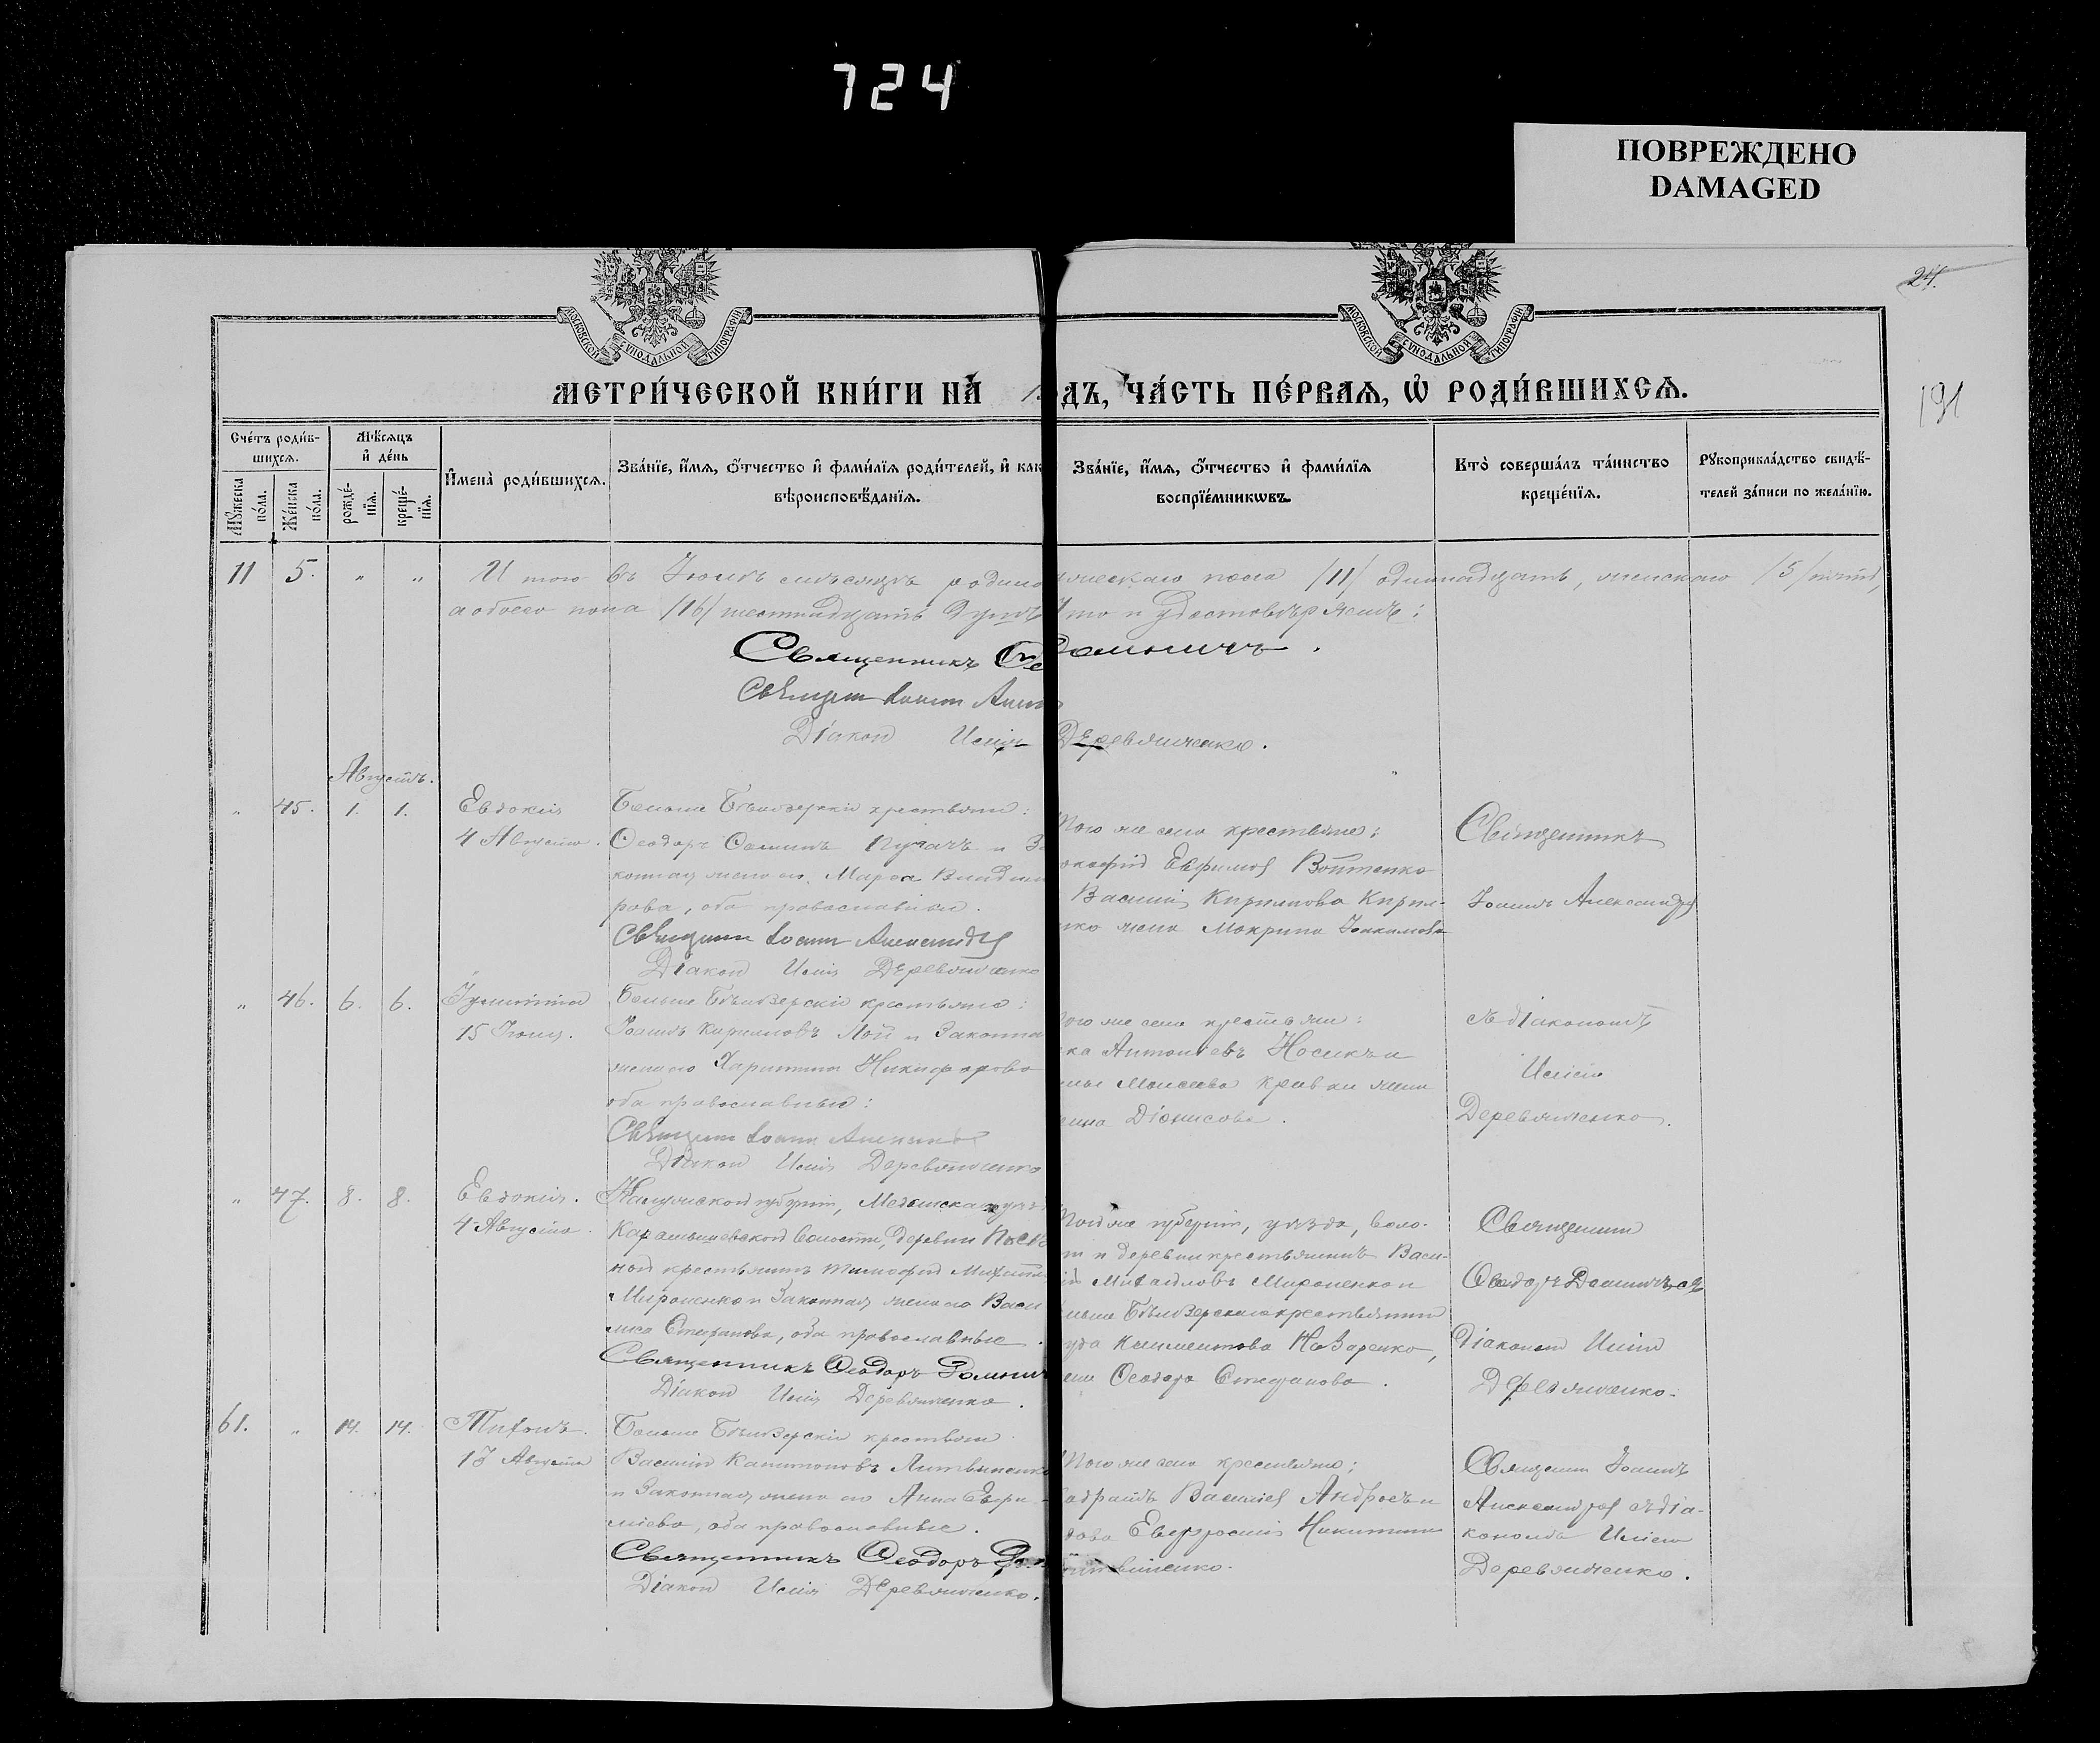 724
ПОВРЕЖДЕНО
DAMAGED
24.
191
МОСКОВСКОЙ СУНОДАЛЬНОЙ ТИПОГРАФІИ
МОСКОВСКОЙ СУНОДАЛЬНОЙ ТИПОГРАФІИ
МЕТРИ́ЧЕСКОЙ КНИ́ГИ НА́ 1 ДЪ, ЧА́СТЬ ПЕ́РВАЯ, Ѽ РОДИ́ВШИХСЯ.
Сче́тъ роди́в-
шихся.
Мѣ́сяцъ
и҆ де́нь
Мꙋ́жеска
по́ла.
Же́нска
по́ла.
рожде́-
нїя.
креще́-
нїя.
И҆мена̀ роди́вшихся.
Зва́нїе, и҆́мя, ѻ҆́тчество и҆ фами́лїя роди́телей, и҆ как
вѣроисповѣ́данїя.
Зва́нїе, и҆́мя, ѻ҆́тчество и҆ фами́лїя
воспрїе́мникѡвъ.
Кто̀ соверша́лъ та́инство
креще́нїя.
Рꙋкоприкла́дство свидѣ́-
телей за́писи по жела́нїю.
11 5. " " И того въ Іюлѣ мѣсяцѣ родило мужескаго пола /11/ одиннадцать, женскаго /5/ пять,
а обоего пола /16/ шестнадцать душъ Что и удостовѣряемъ:
Священникъ Ѳе Домничъ.
Священ Іоанн Алек
Діакон Илія Деревянченко.
Августъ.
" 45. 1. 1. Евдокія
4 Августа.
Больше Бѣлозерскіе крестьяне:
Ѳеодоръ Саввинъ Пугачъ и За
конная жена его Марѳа Владими
рова, оба православные.
Священн Іоанн Александров
Діакон Илія Деревянченко
Того же села крестьяне:
Ефимов Войтенко
Василія Кирилова Кирил-
нко жена Макрина Іоакимова
Священникъ
Іоаннъ Александров
" 46. 6. 6. Іулиттія
15 Іюля.
Больше Бѣлозерскіе крестьяне:
Іоаннъ Кирилловъ Мой и Законна
жена его Харитина Никифорова
оба православные:
Священн Іоанн Александров
Діакон Илія Деревянченко
того же села крестьяне:
ка Антоніевъ Носикъ и
Моисеева жена
Діонисова.
съ діакономъ
Иліею
Деревянченко.
" 47. 8. 8. Евдокія.
4 Августа.
Калужской губерніи, Медынскаго уѣзда
волости, деревни
ной крестьянинъ Тимофей Михаил
Мироненко и Законная жена его Васи
лиса Стефанова, оба православные.
Священникъ Ѳеодоръ Домнич
Діакон Илія Деревянченко.
Той же губерніи, уѣзда, воло-
ти и деревни крестьянинъ Васи-
лій Михаиловъ Мироненко и
Больше Бѣлозерскаго крестьянина
Климентова Назаренко,
жена Ѳеодора Стефанова.
Священник
Ѳеодоръ Домничъ съ
Діаконом Иліею
Деревянченко.
61. " 14. 14. Тихонъ.
13 Августа
Больше Бѣлозерскіе крестьяне
Василій Капитоновъ Литвиненко
и Законная жена его Анна Евфи-
міева, оба православные.
Священникъ Ѳеодоръ Дом
Діакон Илія Деревянченко.
Того же села крестьяне:
Василіев Андрось и
дова Евфросинія Никитина
Литвиненко.
Священн Іоаннъ
Александров съ діа-
кономъ Иліею
Деревянченко.